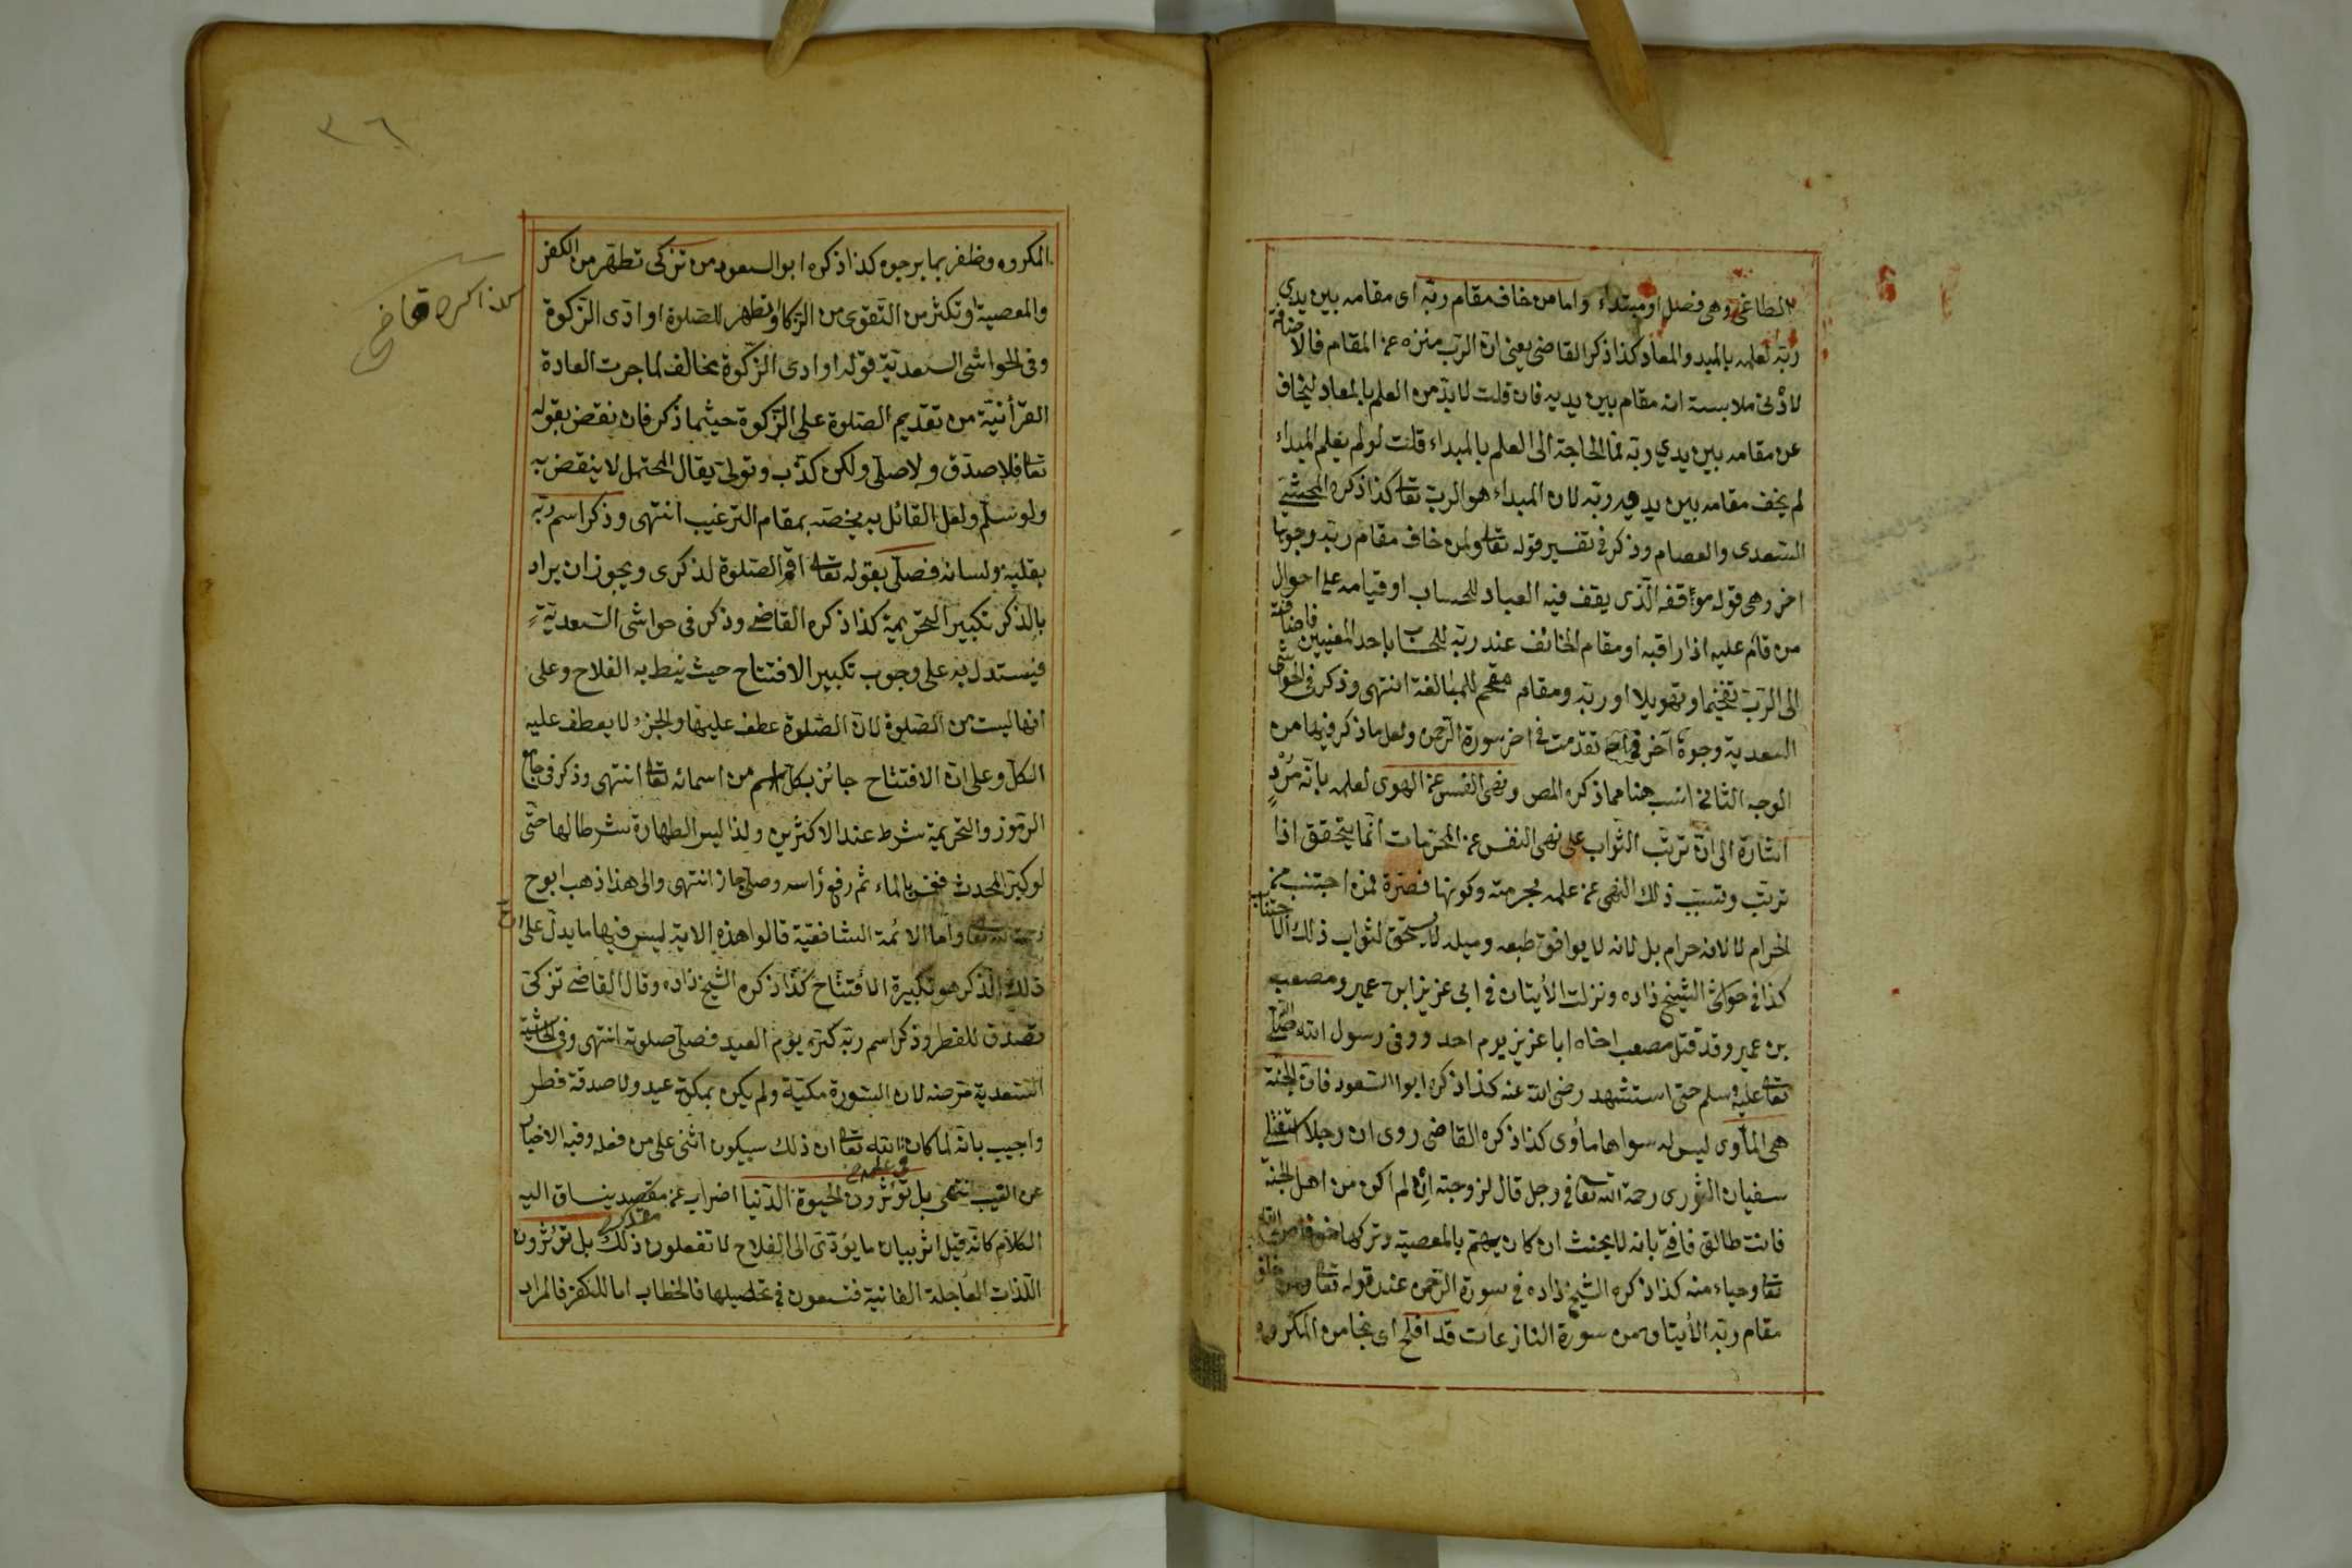 الطاغى وهى فصل او مبتداء واما من خاف مقام ربه اى مقامه بين يدي
ربه لعلمه بالمبدء والمعاد كذا ذكر القاضى يعنى ان الرب منزه عن المقام فالاضافة
لادنى ملابسة انه مقام بين يديه فان قلت لا بد من العلم بالمعاد ليخاف
عن مقامه بين يدي ربه فما الحاجة الى العلم بالمبداء قلت لو لم يعلم المبداء
لم يخف مقامه بين يدي ربه لان المبداء هو الرب تعالى كذا ذكره المحشى
السعدى والعصام وذكر فى تفسير قوله تعالى ولمن خاف مقام ربه وجوها
اخر وهى قوله موقفه الذى يقف فيه العباد للحساب او قيامه على احوال
من قام عليه اذا راقبه او مقام الخائف عند ربه للحساب باحد المعنيين فاضافة
الى الرب تفخيما وتهويلا او ربه ومقام مقحم للمبالغة انتهى وذكر فى الحواشى
السعدية وجوه آخر تقدمت فى اخر سورة الرحمن ولعل ما ذكر فيها من
الوجه الثانى انسب هنا مما ذكره المص ونهى النفس عن الهوى لعلمه بانه مرد
اشارة الى ان ترتب الثواب على نهى النفس عن المحرمات انما يتحقق اذا
ترتب وتسبب ذلك النهى عن علمه بحرمته وكونها مضرة فمن اجتنب عن
الحرام لا لانه حرام بل لانه لا يوافق طبعه وميله لا يستحق لثواب ذلك الاجتناب
كذا فى حواشى الشيخ زاده ونزلت الأيتان فى ابى عزيز ابن عمير ومصعب
بن عمير وقد قتل مصعب اخاه ابا عزيز يوم احد ووقى رسول الله صلى الله
تعالى عليه وسلم حتى استشهد رضى الله عنه كذا ذكره ابو السعود فان الجنة
هى المأوى ليس له سواها مأوى كذا ذكره القاضى روى ان رجلا استفتى
سفيان الثورى رحمة الله تعالى فى رجل قال لزوجته ان لم اكن من اهل الجنة
فانت طالق فافتى بانه لا يحنث ان كان يهتم بالمعصية وتركها خوفا من الله
تعالى وحياء منه كذا ذكره الشيخ زاده فى سورة الرحمن عند قوله تعالى ولمن خاف
مقام ربه الأيتان من سورة النازعات قد افلح اى نجا من المكروه
٣٦
المكروه وظفر بما يرجوه كذا ذكره ابو السعود من تزكى تطهر من الكفر
والمعصية او تكثر من التقوى من الزكاء او تطهر للصلوة او ادى الزكوة
كذا ذكره قاضى
وفى الحواشى السعدية قوله او ادى الزكوة يخالف لما جرت العادة
القرأنية من تقديم الصلوة على الزكوة حيثما ذكر فان نقض بقوله
تعالى فلا صدق ولا صلى ولكن كذب وتولى يقال المحتمل لا ينقض به
ولو سلم ولعل القائل به يخصه بمقام الترغيب انتهى وذكر اسم ربه
بقلبه ولسانه فصلى بقوله تعالى اقم الصلوة لذكرى ويجوز ان يراد
بالذكر تكبير التحريمية كذا ذكره القاضى وذكر فى حواشى السعدية
فيستدل به على وجوب تكبير الافتتاح حيث نيط به الفلاح وعلى
انها ليست من الصلوة لان الصلوة عطف عليها والجزء لا يعطف عليه
الكل وعلى ان الافتتاح جائز بكل اسم من اسمائه تعالى انتهى وذكر فى جامع
الرموز والتحريمية شرط عند الاكثرين ولذا ليس الطهارة شرطا لها حتى
لو كبر المحدث فغمر بالماء ثم رفع رأسه وصلى جاز انتهى والى هذا ذهب ابو ح
رحمة الله تعالى واما الائمة الشافعية قالوا هذه الاية ليس فيها ما يدل على ان
ذلك الذكر هو تكبيرة الافتتاح كذا ذكره الشيخ زاده وقال القاضى تزكى
تصدق للفطر وذكر اسم ربه كبر يوم العيد فصلى صلوته انتهى وفى الحاشية
السعدية مرضه لان السورة مكية ولم يكن بمكة عيد ولا صدقة فطر
واجيب بانه لما كان فى علم الله تعالى ان ذلك سيكون اثنى على من فعله وفيه الاخبار
عن الغيب انتهى بل تؤثرون الحيوة الدنيا اضراب عن مقصد ينساق اليه
الكلام كانه قيل اثر بيان ما يؤدى الى الفلاح لا تفعلون ذلك بل تؤثرون
اللذات العاجلة الفانية فتسعون فى تحصيلها فالخطاب اما للكفر فالمراد